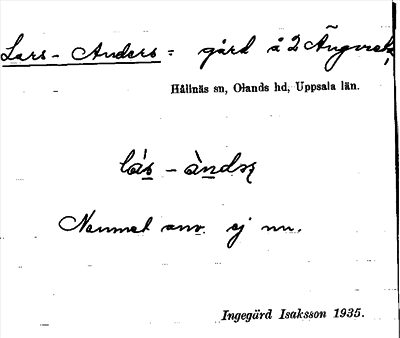 Lars-Anders = gård å 2 Ängvreta,
Hållnäs sn, Olands hd, Uppsala län.
lás - àndș
Namnet anv. ej nu.
Ingegärd Isaksson 1935.